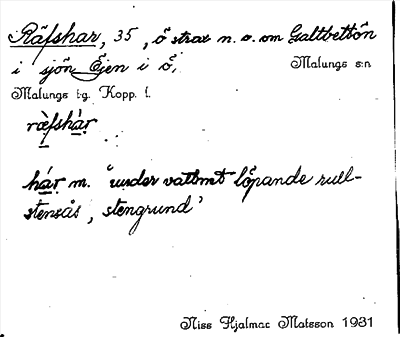 Räfshar, 35, ö strax n. o. om Galtbettön
i sjön Ejen i ö,
Malungs s:n
Malungs tg. Kopp. l.
ræfshàr
hár m. "under vattnet löpande rull-
stensås, stengrund"
Niss Hjalmar Matsson 1931